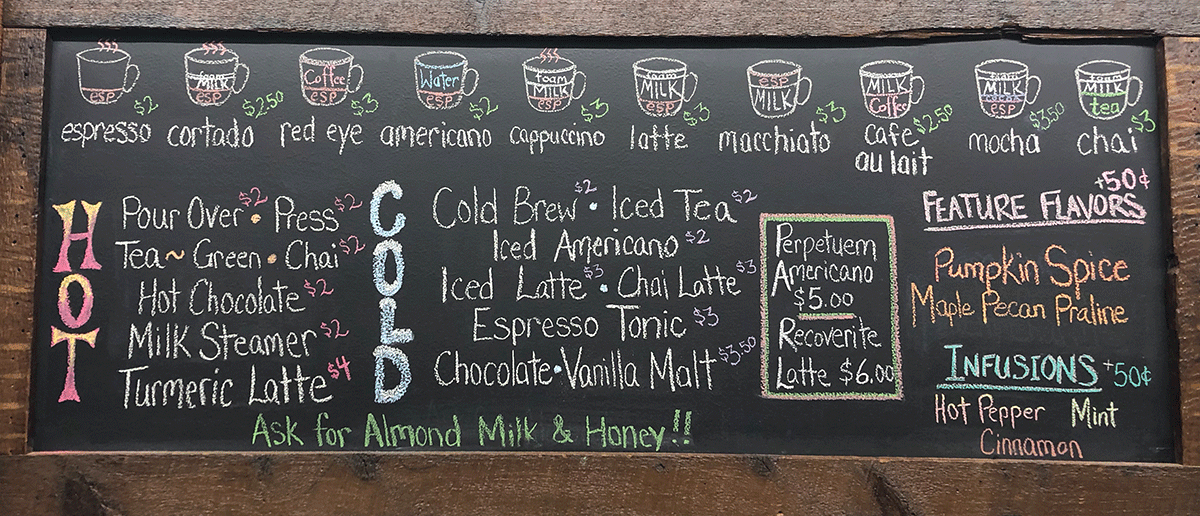 esp
foam MILK esp
Coffee esp
Water esp
foam MILK esp
foam MILK esp
esp MILK
foam MILK Coffee
foam MILK esp
foam MILK tea
$2 $2.50 $3 $2 $3 $3 $3 $2.50 $3.50 $3
espresso cortado red eye americano cappuccino latte macchiato cafe au lait mocha chai
HOT
Pour Over $2 • Press $2
Tea ~ Green • Chai $2
Hot Chocolate $2
Milk Steamer $2
Turmeric Latte $4
COLD
Cold Brew $2 • Iced Tea $2
Iced Americano $2
Iced Latte $3 • Chai Latte $3
Espresso Tonic $3
Chocolate • Vanilla Malt $3.50
Ask for Almond Milk & Honey!!
Perpetuem
Americano
$5.00
Recoverite
Latte $6.00
+50¢
FEATURE FLAVORS
Pumpkin Spice
Maple Pecan Praline
INFUSIONS +50¢
Hot Pepper Mint
Cinnamon